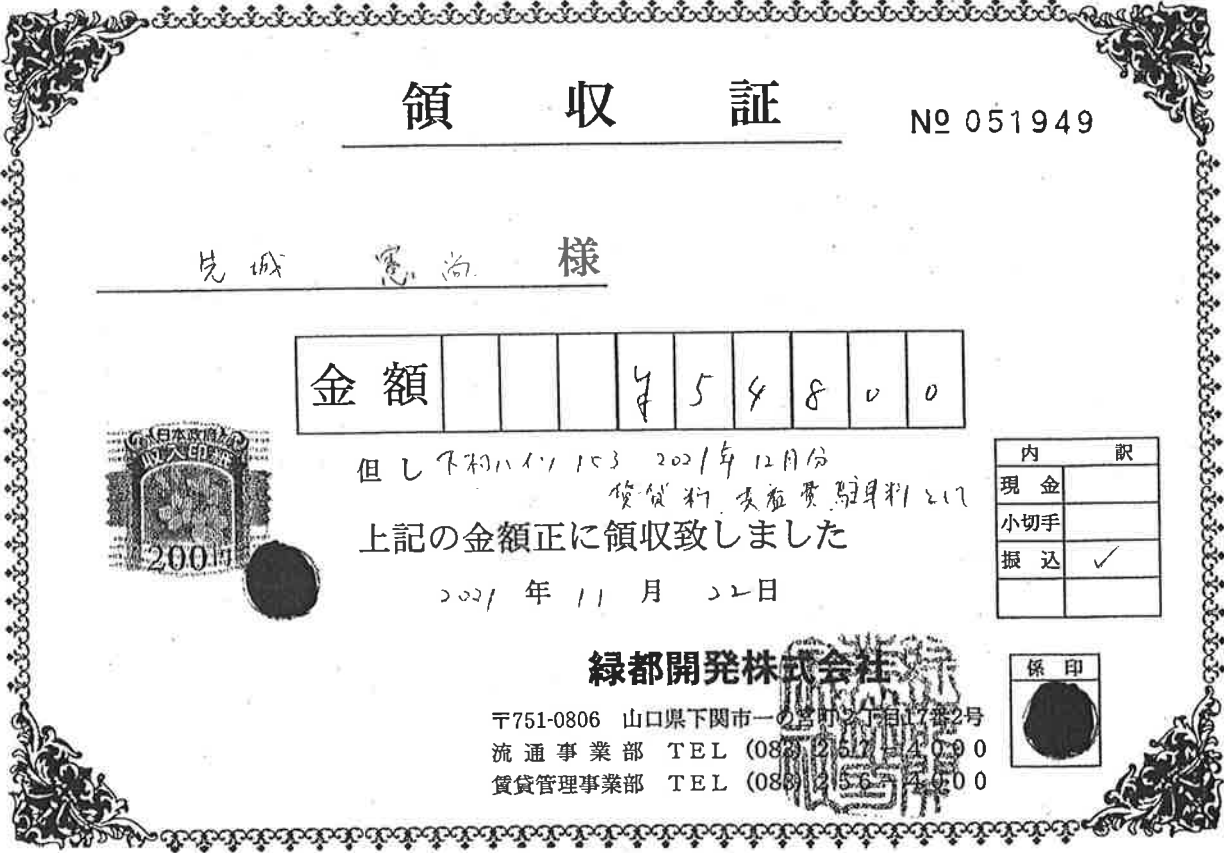 領収証
№ 051949
先城 憲尚 様
金額 ¥54800
但し 下村ハイツ 153 2021年12月分
賃貸料、共益費、駐車料として
上記の金額正に領収致しました
2021年11月22日
日本政府
収入印紙
200円
内訳
現金
小切手
振込 ✓
緑都開発株式会社
〒751-0806 山口県下関市一の宮町2丁目17番2号
流通事業部 TEL (083) 257-4000
賃貸管理事業部 TEL (083) 256-4000
係印